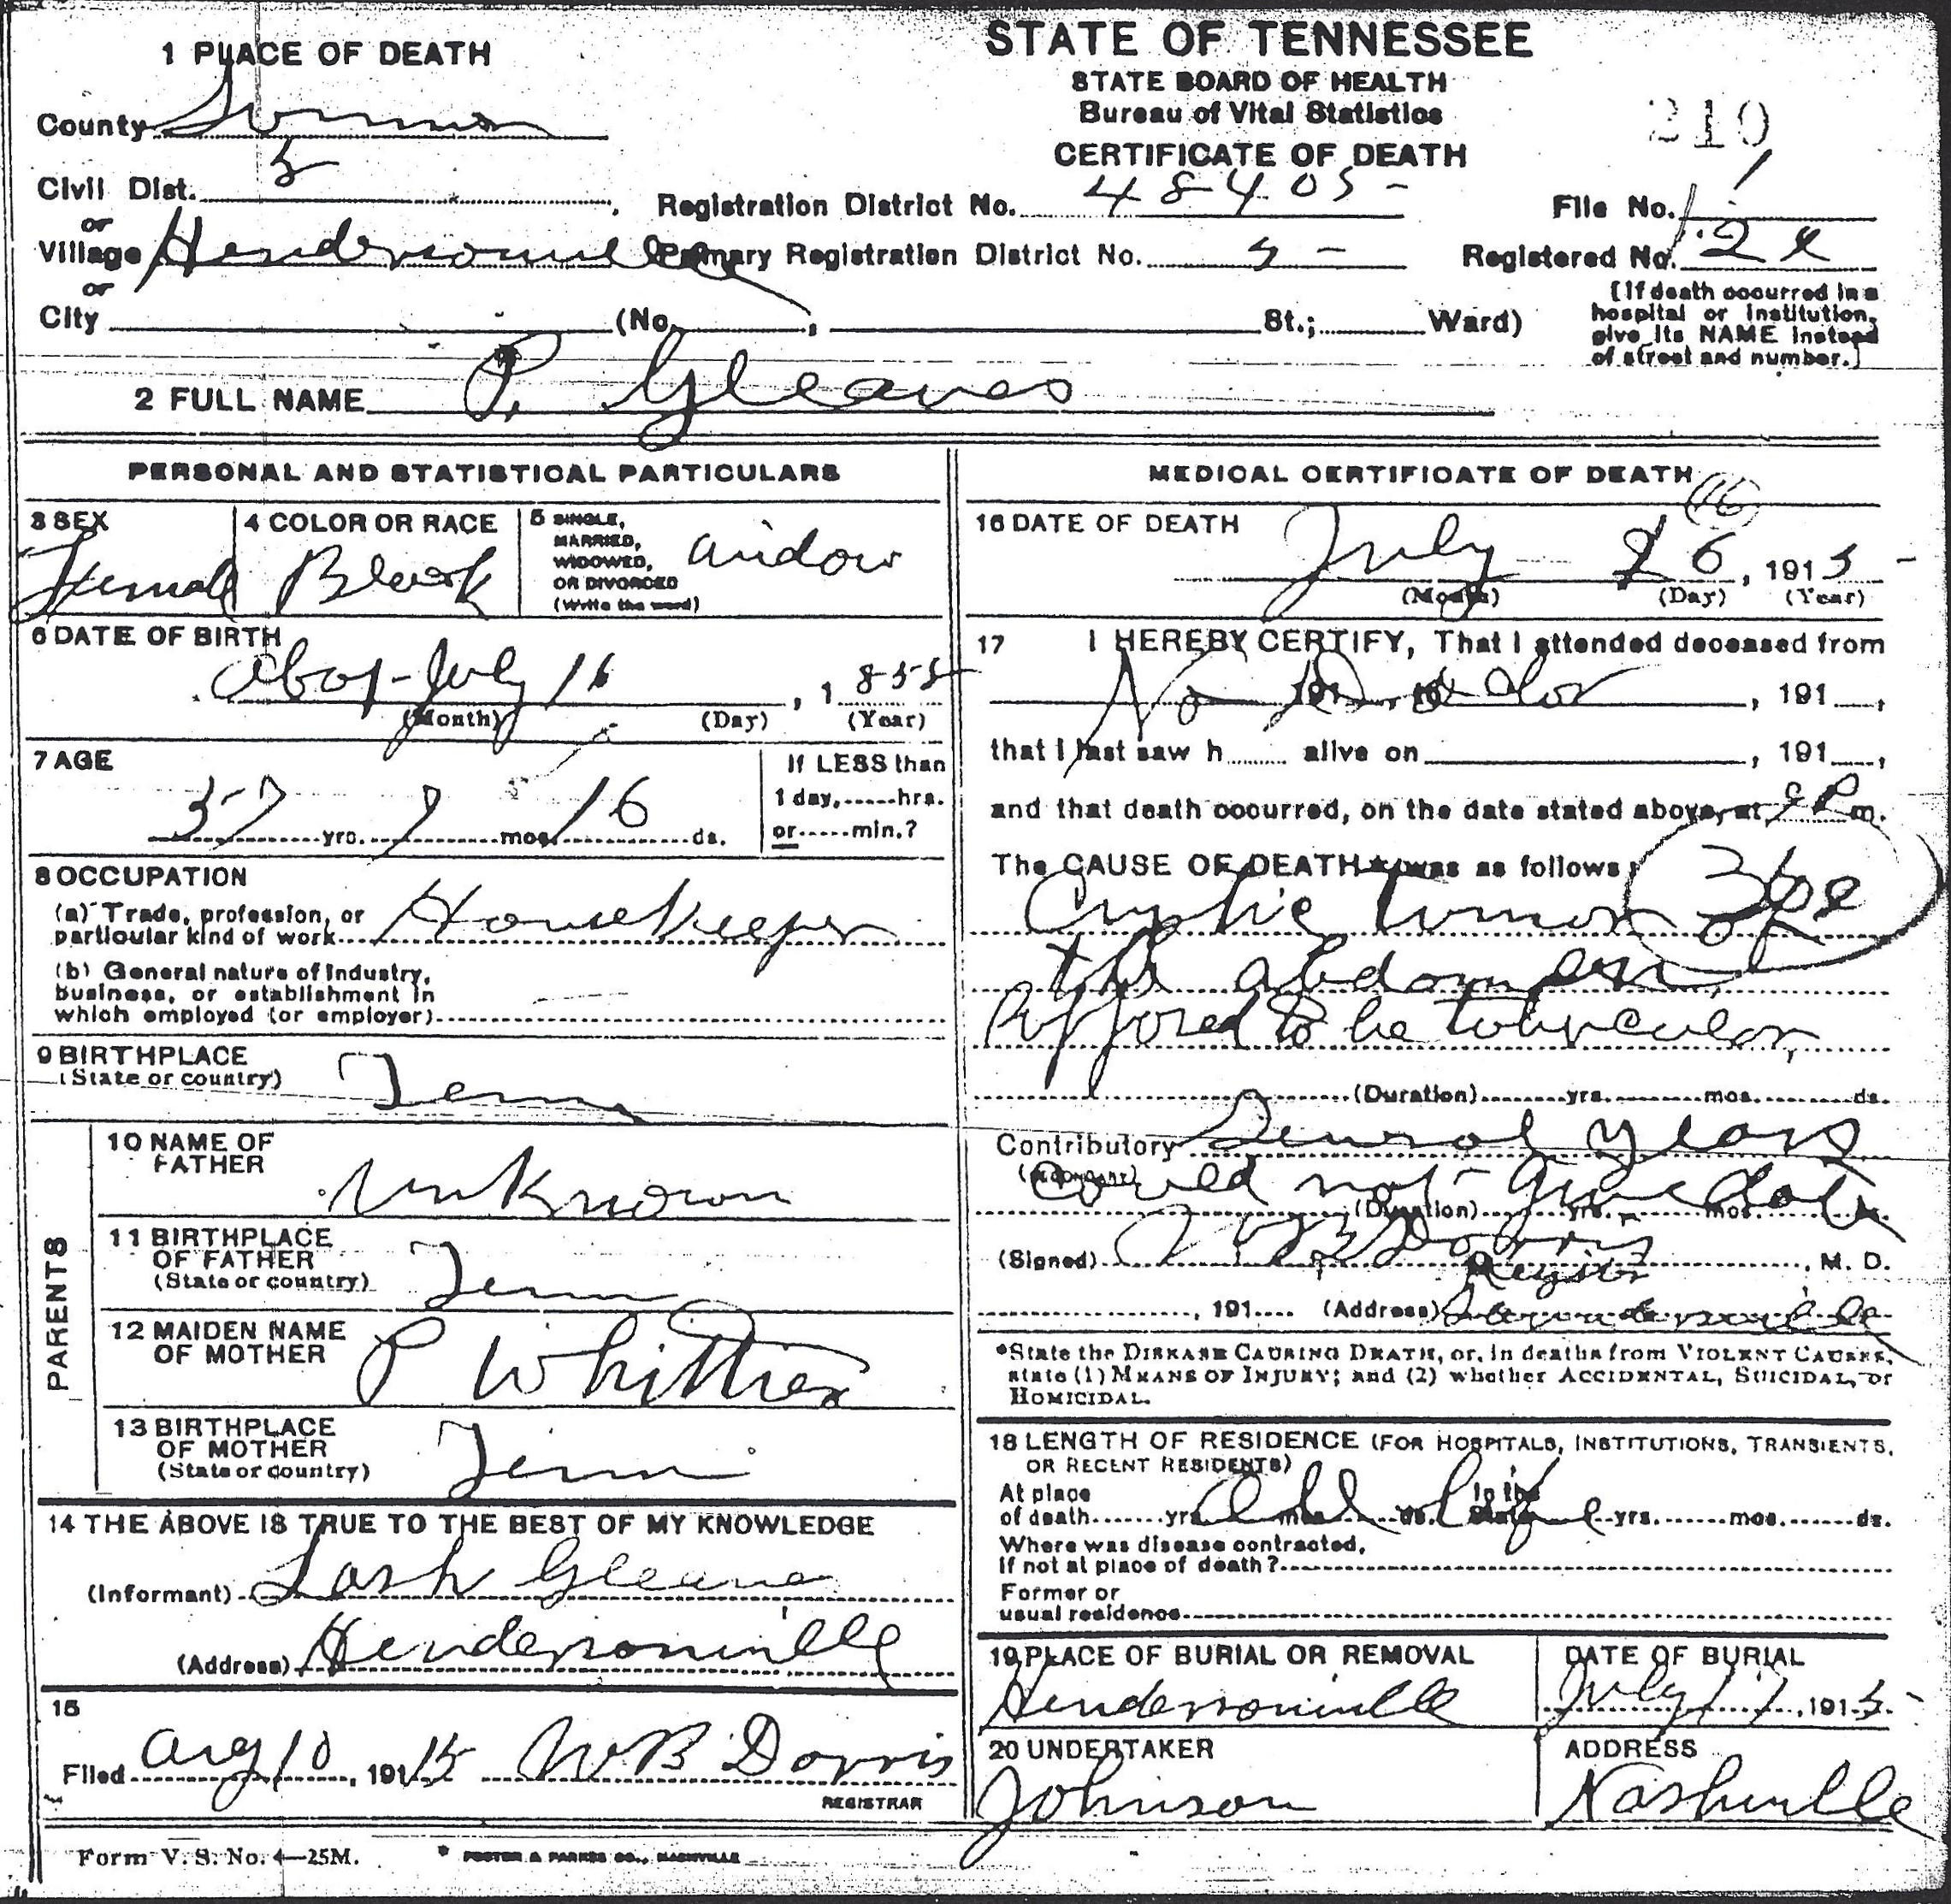 STATE OF TENNESSEE
STATE BOARD OF HEALTH
Bureau of Vital Statistics
CERTIFICATE OF DEATH
210
1 PLACE OF DEATH
County
Civil Dist. 5
or
Village Hendersonville
or
City (No. , St.; Ward)
Registration District No. 48405
File No. 1
Primary Registration District No. 5
Registered No. 2
[If death occurred in a
hospital or institution,
give its NAME instead
of street and number.]
2 FULL NAME P. Gleaves
PERSONAL AND STATISTICAL PARTICULARS
3 SEX
Female
4 COLOR OR RACE
Black
5 SINGLE,
MARRIED,
WIDOWED,
OR DIVORCED
(Write the word)
widow
6 DATE OF BIRTH
July 16, 1855
(Month) (Day) (Year)
7 AGE
57 yrs. 7 mos. 16 ds.
If LESS than
1 day, hrs.
or min.?
8 OCCUPATION
(a) Trade, profession, or
particular kind of work Housekeeper
(b) General nature of Industry,
Business, or establishment in
which employed (or employer)
9 BIRTHPLACE
(State or country) Tenn
PARENTS
10 NAME OF
FATHER
unknown
11 BIRTHPLACE
OF FATHER
(State or country) Tenn
12 MAIDEN NAME
OF MOTHER
P Whittier
13 BIRTHPLACE
OF MOTHER
(State or country) Tenn
14 THE ABOVE IS TRUE TO THE BEST OF MY KNOWLEDGE
(Informant) Gleaves
(Address) Hendersonville
15
Filed Aug 10, 1915 W B Dorris
REGISTRAR
MEDICAL CERTIFICATE OF DEATH
16
16 DATE OF DEATH
July 6, 1915
(Month) (Day) (Year)
17 I HEREBY CERTIFY, That I attended deceased from
No Doctor, 191 ,
that I last saw h alive on , 191 ,
and that death occurred, on the date stated above, at 9 P m.
The CAUSE OF DEATH* was as follows:
tumor of
the abdomen
to be
(Duration) yrs. mos. ds.
Contributory Several years
(SECONDARY) could not give date
(Duration) yrs. mos. ds.
(Signed) W B Dorris, M. D.
, 191 (Address) Hendersonville
*State the DISEASE CAUSING DEATH, or, in deaths from VIOLENT CAUSES,
state (1) MEANS OF INJURY; and (2) whether ACCIDENTAL, SUICIDAL, or
HOMICIDAL.
18 LENGTH OF RESIDENCE (FOR HOSPITALS, INSTITUTIONS, TRANSIENTS,
OR RECENT RESIDENTS)
At place In the
of death yrs. mos. ds. State yrs. mos. ds.
all life
Where was disease contracted,
If not at place of death?
Former or
usual residence
19 PLACE OF BURIAL OR REMOVAL
Hendersonville
DATE OF BURIAL
July 17, 1915
20 UNDERTAKER
Johnson
ADDRESS
Nashville
Form V. S. No. 4—25M.
FOSTER & PARKES CO., NASHVILLE